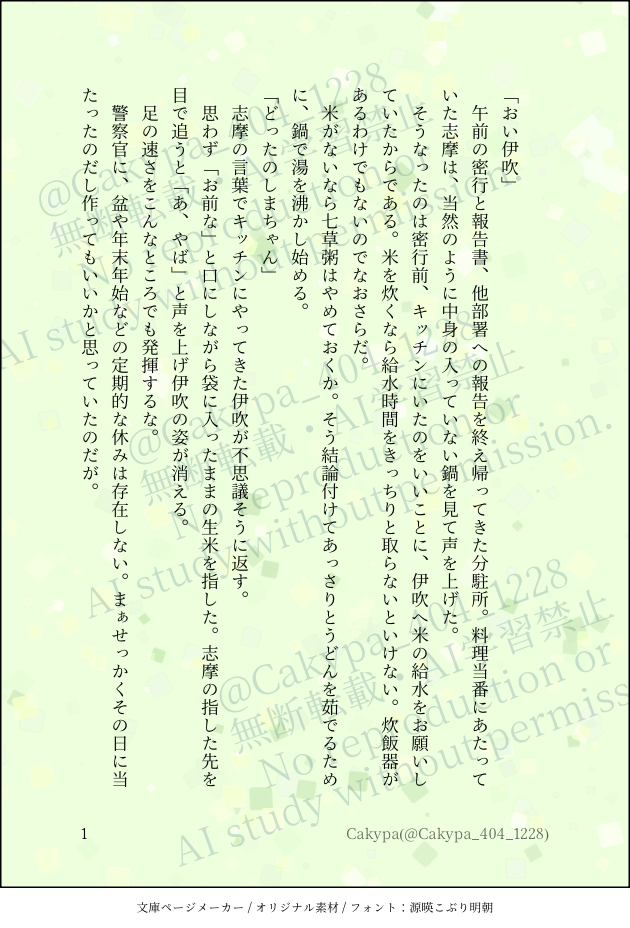 「おい伊吹」
　午前の密行と報告書、他部署への報告を終え帰ってきた分駐所。料理当番にあたって
いた志摩は、当然のように中身の入っていない鍋を見て声を上げた。
　そうなったのは密行前、キッチンにいたのをいいことに、伊吹へ米の給水をお願いし
ていたからである。米を炊くなら給水時間をきっちりと取らないといけない。炊飯器が
あるわけでもないのでなおさらだ。
　米がないなら七草粥はやめておくか。そう結論付けてあっさりとうどんを茹でるため
に、鍋で湯を沸かし始める。
「どったのしまちゃん」
　志摩の言葉でキッチンにやってきた伊吹が不思議そうに返す。
　思わず「お前な」と口にしながら袋に入ったままの生米を指した。志摩の指した先を
目で追うと「あ、やば」と声を上げ伊吹の姿が消える。
　足の速さをこんなところでも発揮するな。
　警察官に、盆や年末年始などの定期的な休みは存在しない。まぁせっかくその日に当
たったのだし作ってもいいかと思っていたのだが。
1
Cakypa(@Cakypa_404_1228)
文庫ページメーカー / オリジナル素材 / フォント：源暎こぶり明朝
@Cakypa_404_1228
無断転載・AI学習禁止
No reproduction or
AI study without permission.
@Cakypa_404_1228
無断転載・AI学習禁止
No reproduction or
AI study without permission.
@Cakypa_404_1228
無断転載・AI学習禁止
No reproduction or
AI study without permiss